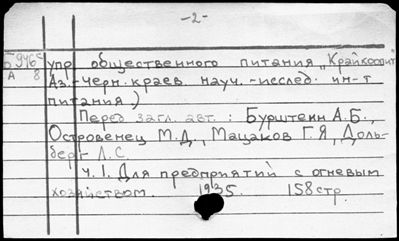 -2-
Б 9465 упр. общественного питания „Крайкосоюз"
А 8 Аз.-Черн. краев. науч.-исслед. ин-т
питания)
Перед загл. авт.: Бурштейн А.Б.,
Островенец М.Д., Мацаков Г.Я., Доль-
берг Л.С.
ч. 1. Для предприятий с огневым
хозяйством. 1935. 158 стр.